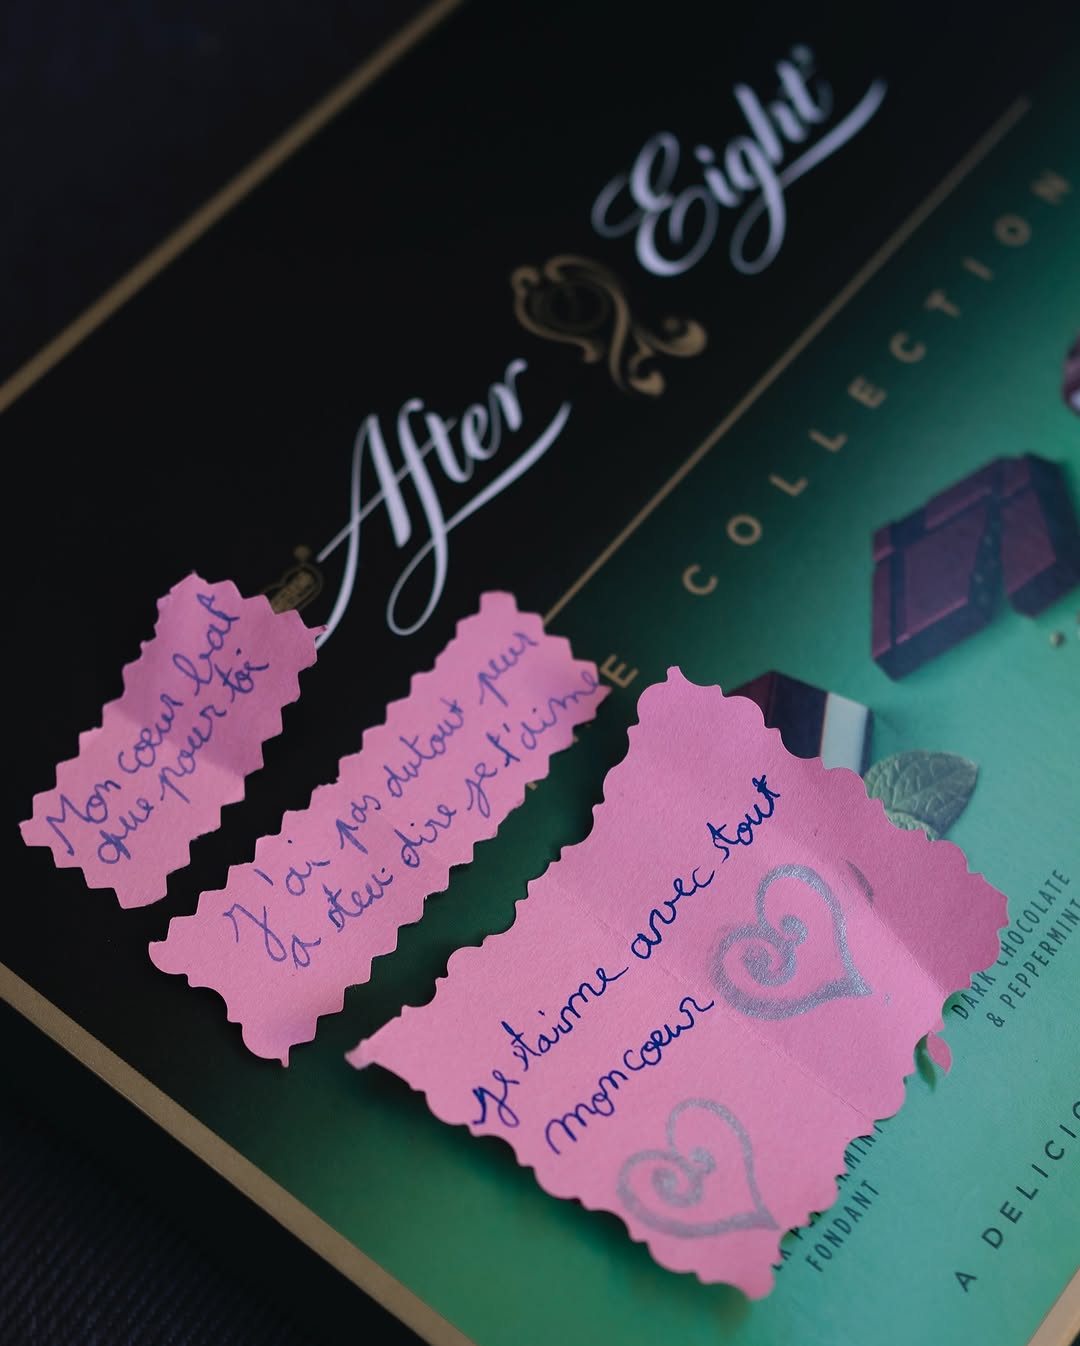 After Eight
COLLECTION
Mon coeur bat
que pour toi
J'ai pas dutout peur
a dire je t'aime
je t'aime avec tout
mon coeur
DARK CHOCOLATE
& PEPPERMINT
FONDANT
A DELICIO